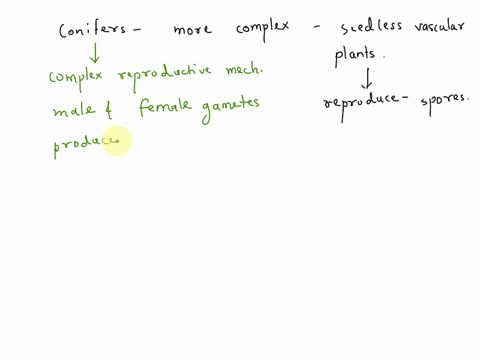 Conifers - more complex - seedless vascular plants.
complex reproductive mech.
male & female gametes
reproduce - spores.
produce